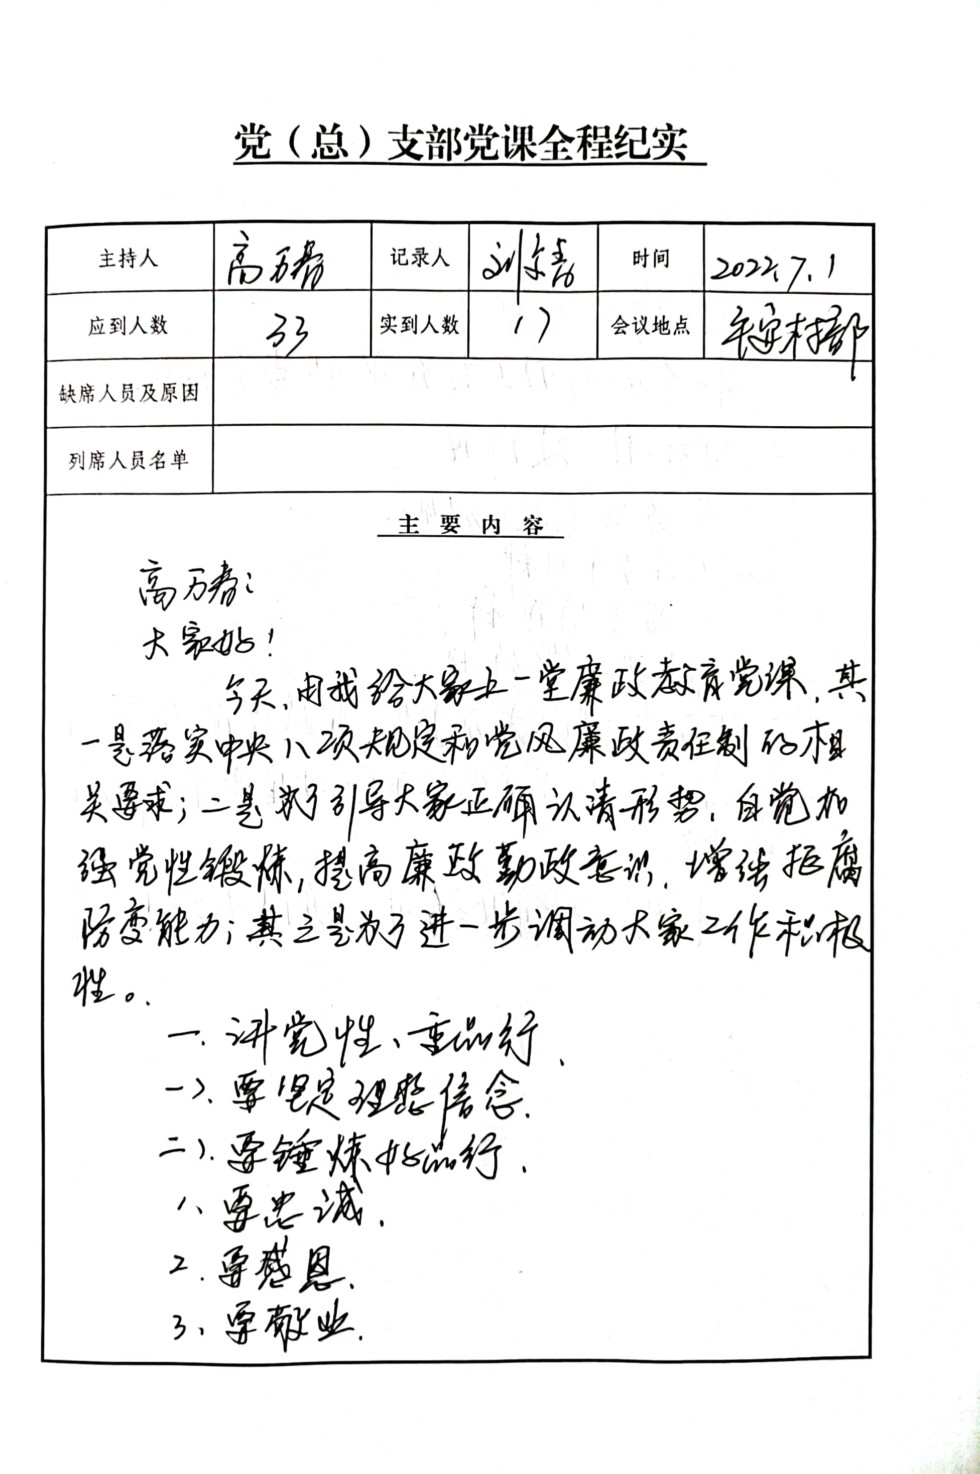 党（总）支部党课全程纪实
主持人 高万春 记录人 刘 时间 2022.7.1
应到人数 33 实到人数 17 会议地点 村部
缺席人员及原因
列席人员名单
主要内容
高万春：
大家好！
今天，由我给大家上一堂廉政教育党课，其
一是落实中央八项规定和党风廉政责任制的相
关要求；二是为了引导大家正确认清形势，自觉加
强党性锻炼，提高廉政勤政意识，增强拒腐
防变能力；其三是为了进一步调动大家工作积极
性。
一.讲党性、重品行.
一).要坚定理想信念.
二).要锤炼好品行.
1、要忠诚.
2.要感恩.
3、要敬业.